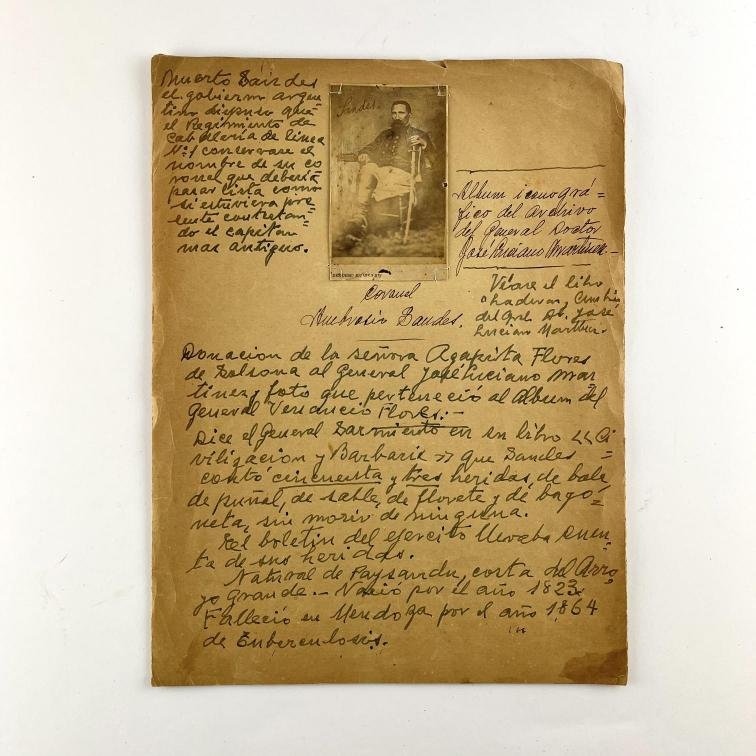 Muerto Sandes
el gobierno argen
tino dispuso que
el Regimiento de
Caballeria de linea
Nº 1 conservase el
nombre de su co
ronel que deberia
pasar lista como
si estuviera pre
sente contestan-
do el capitan
mas antiguo.
Sandes.
Album iconográ=
fico del Archivo
del General Doctor
José Luciano Martinez-
Coronel
Ambrosio Sandes.
Véase el libro
del Gral. Dr. José
Luciano Martinez.
Donacion de la señora Agapita Flores
de Solsona al General José Luciano Mar-
tinez, foto que perteneció al Album del
General Venancio Flores.-
Dice el General Sarmiento en su libro "Ci
vilizacion y Barbarie" que Sandes =
contó cincuenta y tres heridas, de bala
de puñal, de sable, de florete y de bayo=
neta, sin morir de ninguna.
El boletin del ejercito llevaba cuen-
ta de sus heridas.
Natural de Paysandu, costa del Arro-
yo Grande.- Nació por el año 1823.
Falleció en Mendoza por el año 1864
de Tuberculosis.